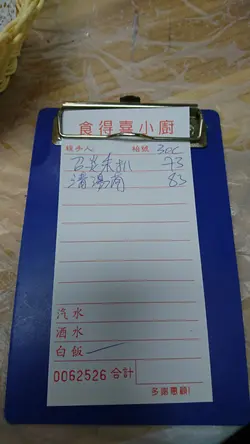 食得喜小廚
經手人 枱號 30C
豆炎朱扒 73
清湯南 83
汽水
酒水
白飯
0062526 合計
多謝惠顧!